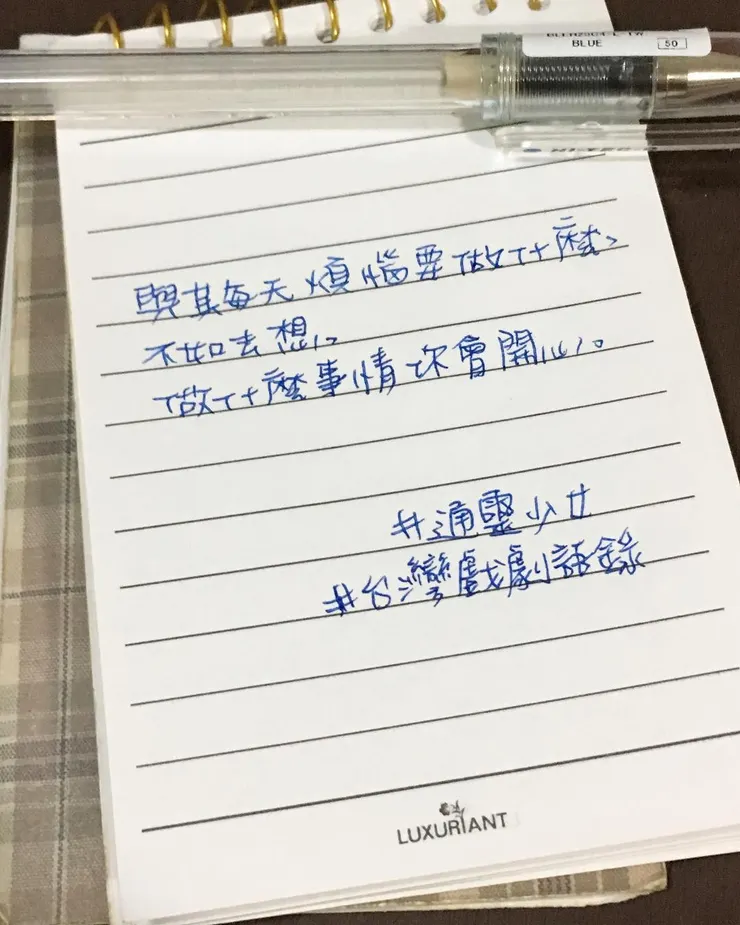 BLUE
50
與其每天煩惱要做什麼、
不如去想、
做什麼事情你會開心。
#通靈少女
#台灣戲劇語錄
LUXURIANT